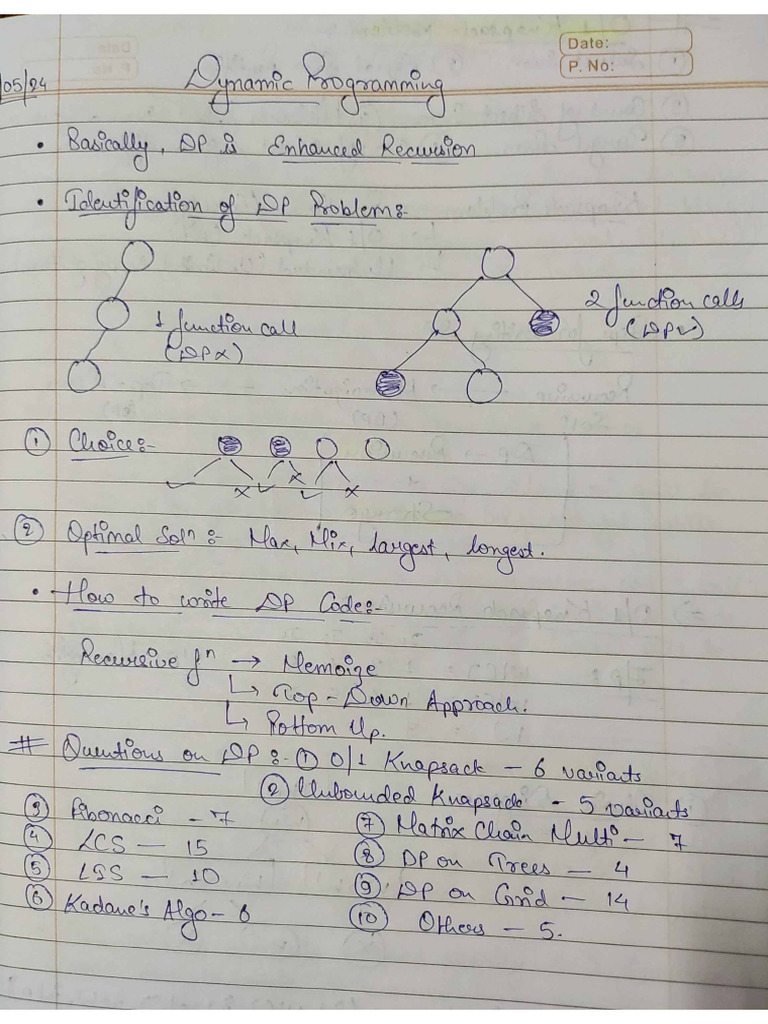 Date:
P. No:
05/24
Dynamic Programming
• Basically, DP is Enhanced Recursion
• Identification of DP Problem:-
1 function call
(DP x)
2 function calls
(DP ✓)
① Choice:-
✓ x ✓ x ✓ x
② Optimal Solⁿ:- Max, Mix, largest, longest.
• How to write DP Code:-
Recursive fⁿ → Memoize
↳ Top-Down Approach.
↳ Bottom Up.
# Questions on DP:- ① 0/1 Knapsack - 6 variants
② Unbounded Knapsack - 5 variants
③ Fibonacci - 7
④ LCS - 15
⑤ LSS - 10
⑥ Kadane's Algo - 6
⑦ Matrix Chain Multi - 7
⑧ DP on Trees - 4
⑨ DP on Grid - 14
⑩ Others - 5.